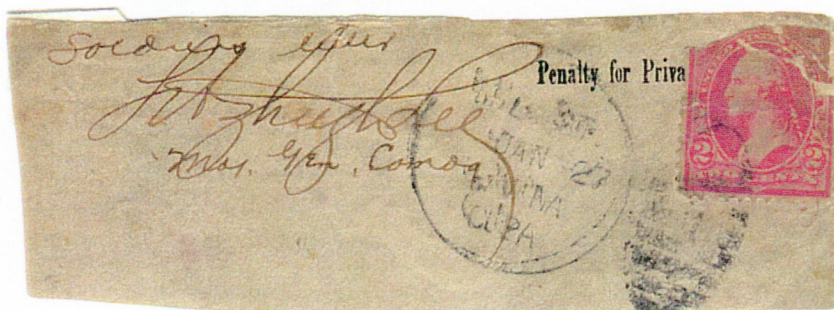 Soldiers letter
Fitzhugh Lee
Maj. Gen. Comdg
Penalty for Priva
JAN 27
CUBA
2 2